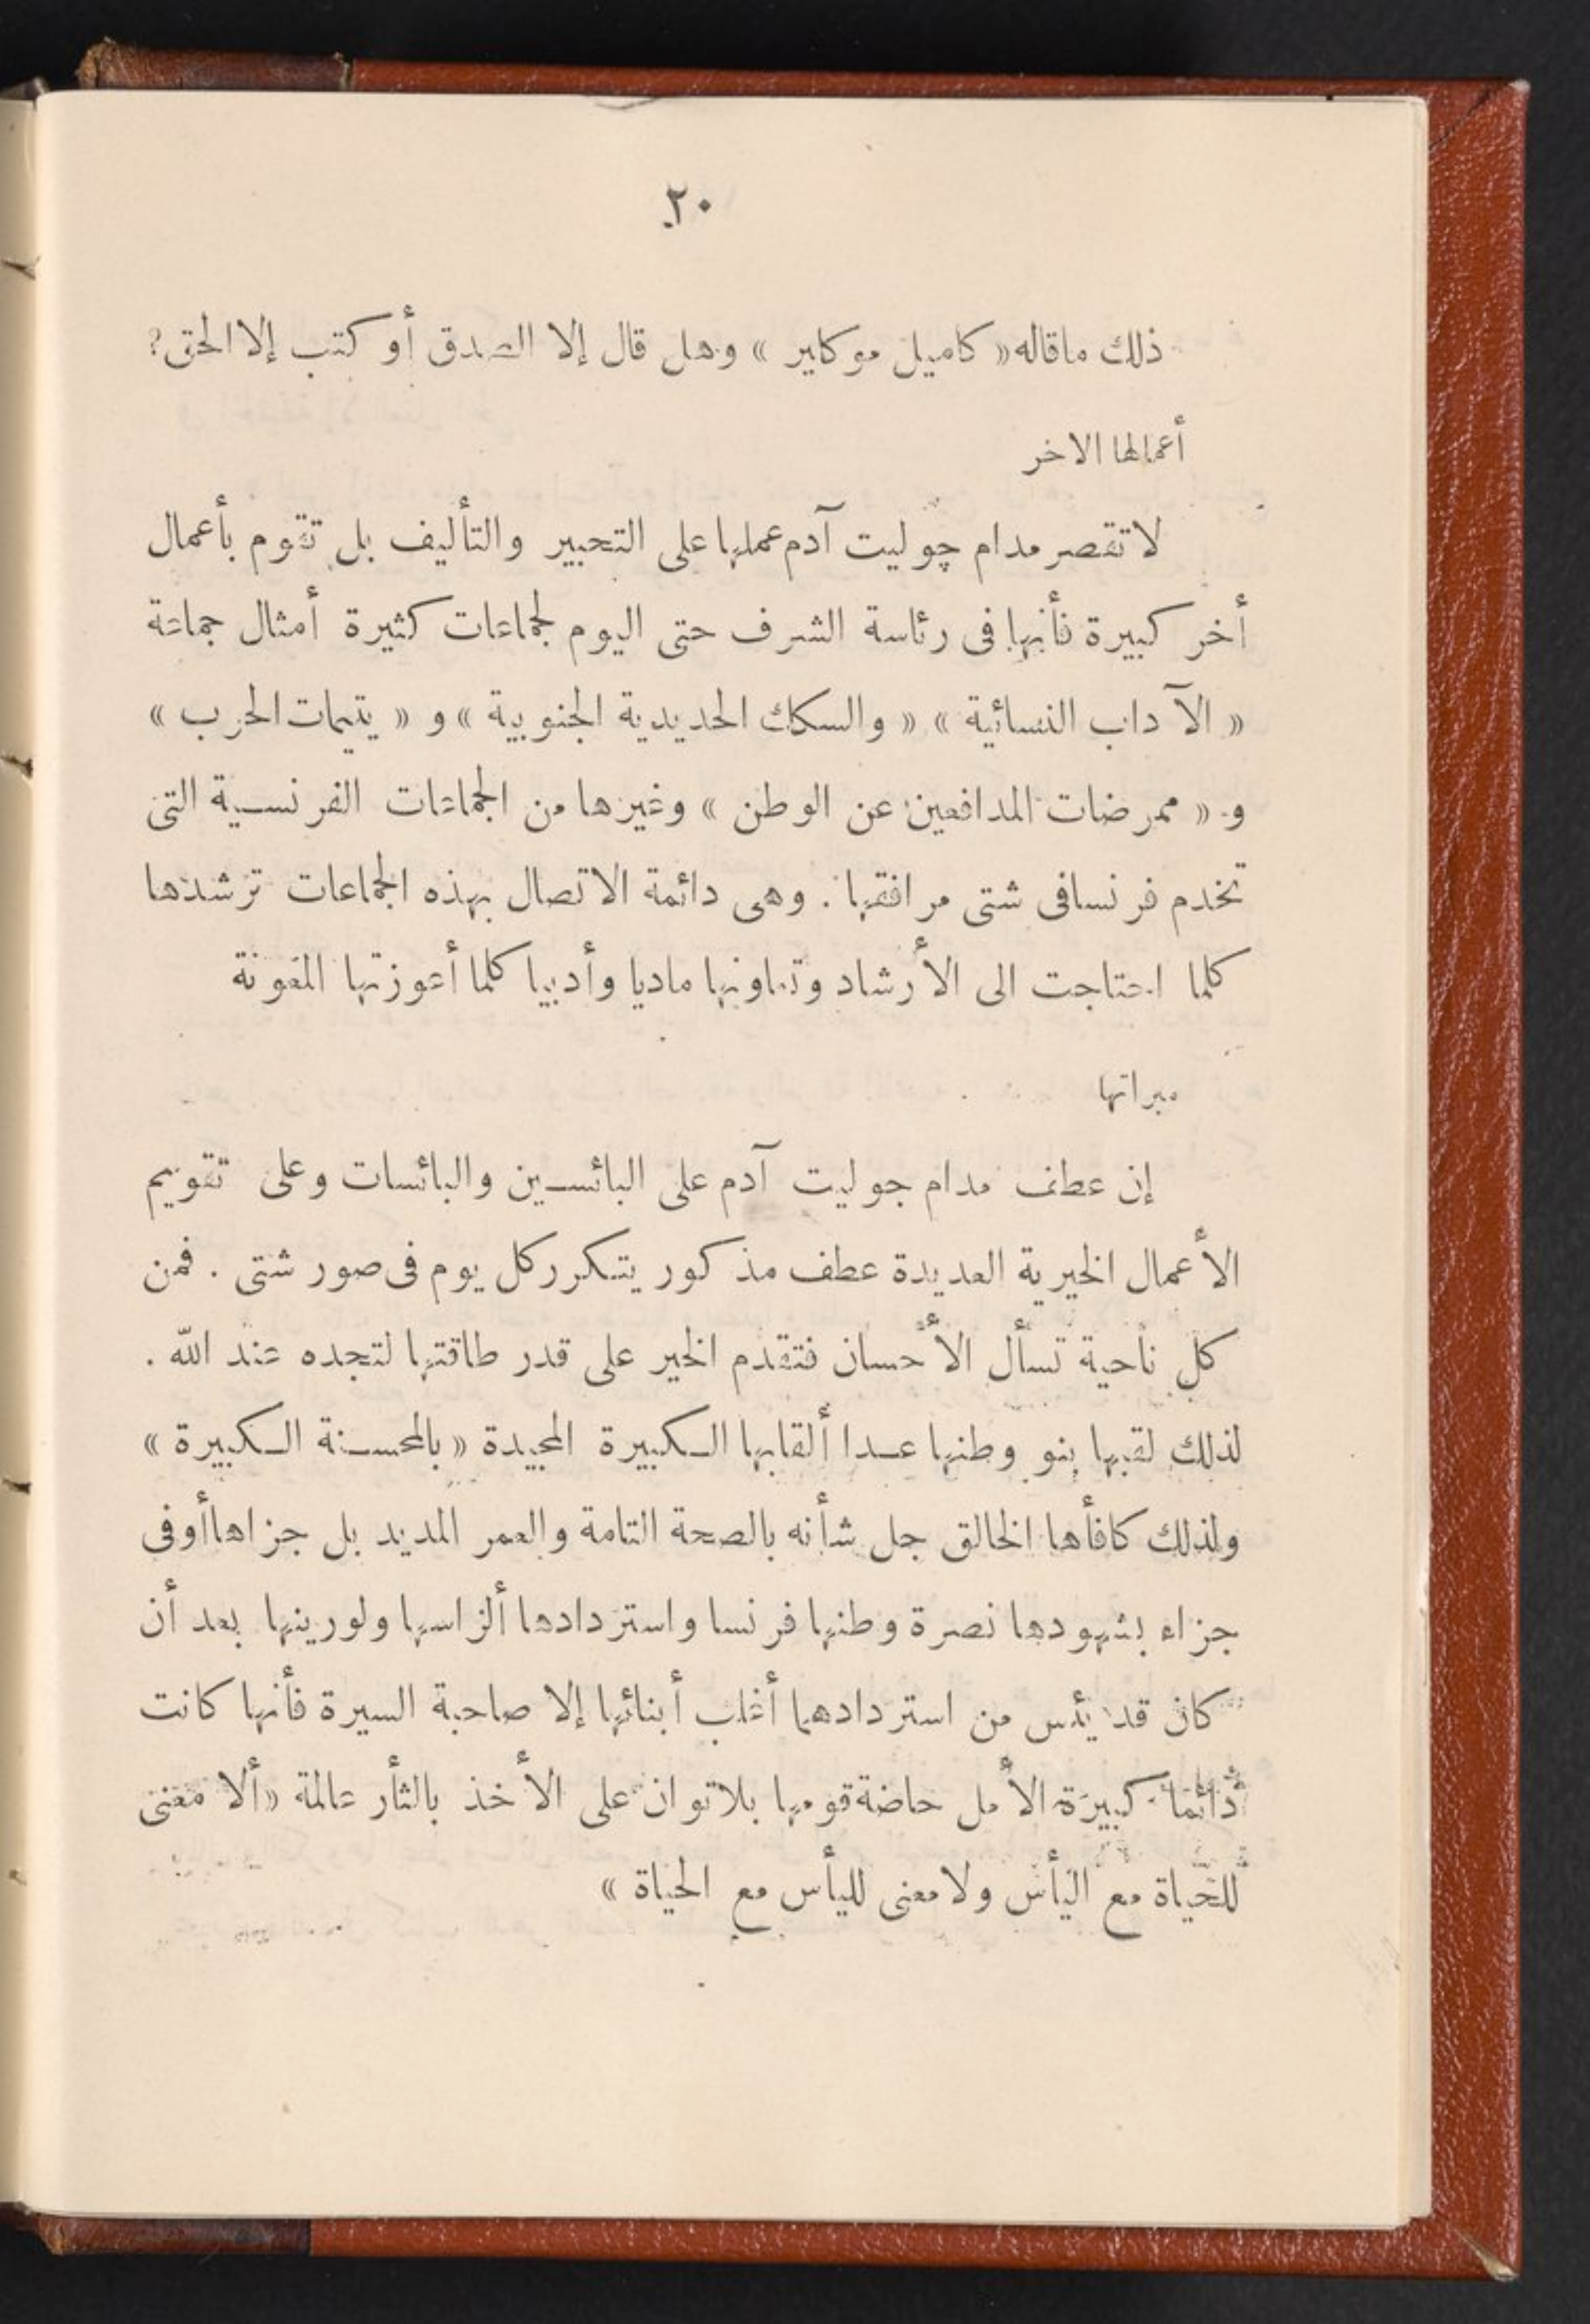 ٢٠
ذلك ماقاله « كاميل موكاير » وهل قال إلا الصدق أو كتب إلا الحق؟
أعمالها الاخر
لا تقصر مدام چوليت آدم عملها على التحبير والتأليف بل تقوم بأعمال
أخر كبيرة فأنها فى رئاسة الشرف حتى اليوم لجماعات كثيرة أمثال جماعة
« الآداب النسائية » « والسكك الحديدية الجنوبية » و « يتيمات الحرب »
و « ممرضات المدافعين عن الوطن » وغيرها من الجماعات الفرنسية التى
تخدم فرنسا فى شتى مرافقها . وهى دائمة الاتصال بهذه الجماعات ترشدها
كلما احتاجت الى الأرشاد وتعاونها ماديا وأدبيا كلما أعوزتها المعونة
مبراتها
إن عطف مدام جوليت آدم على البائسين والبائسات وعلى تقويم
الأعمال الخيرية العديدة عطف مذكور يتكرر كل يوم فى صور شتى . فمن
كل ناحية تسأل الأحسان فتقدم الخير على قدر طاقتها لتجده عند الله .
لذلك لقبها بنو وطنها عدا ألقابها الكبيرة المجيدة « بالمحسنة الكبيرة »
ولذلك كافأها الخالق جل شأنه بالصحة التامة والعمر المديد بل جزاها أوفى
جزاء بشهودها نصرة وطنها فرنسا واستردادها ألزاسها ولورينها بعد أن
كان قد يئس من استردادهما أغلب أبنائها إلا صاحبة السيرة فأنها كانت
دائما كبيرة الأمل حاضة قومها بلا توان على الأخذ بالثأر عالمة « ألا معنى
للحياة مع اليأس ولا معنى لليأس مع الحياة »